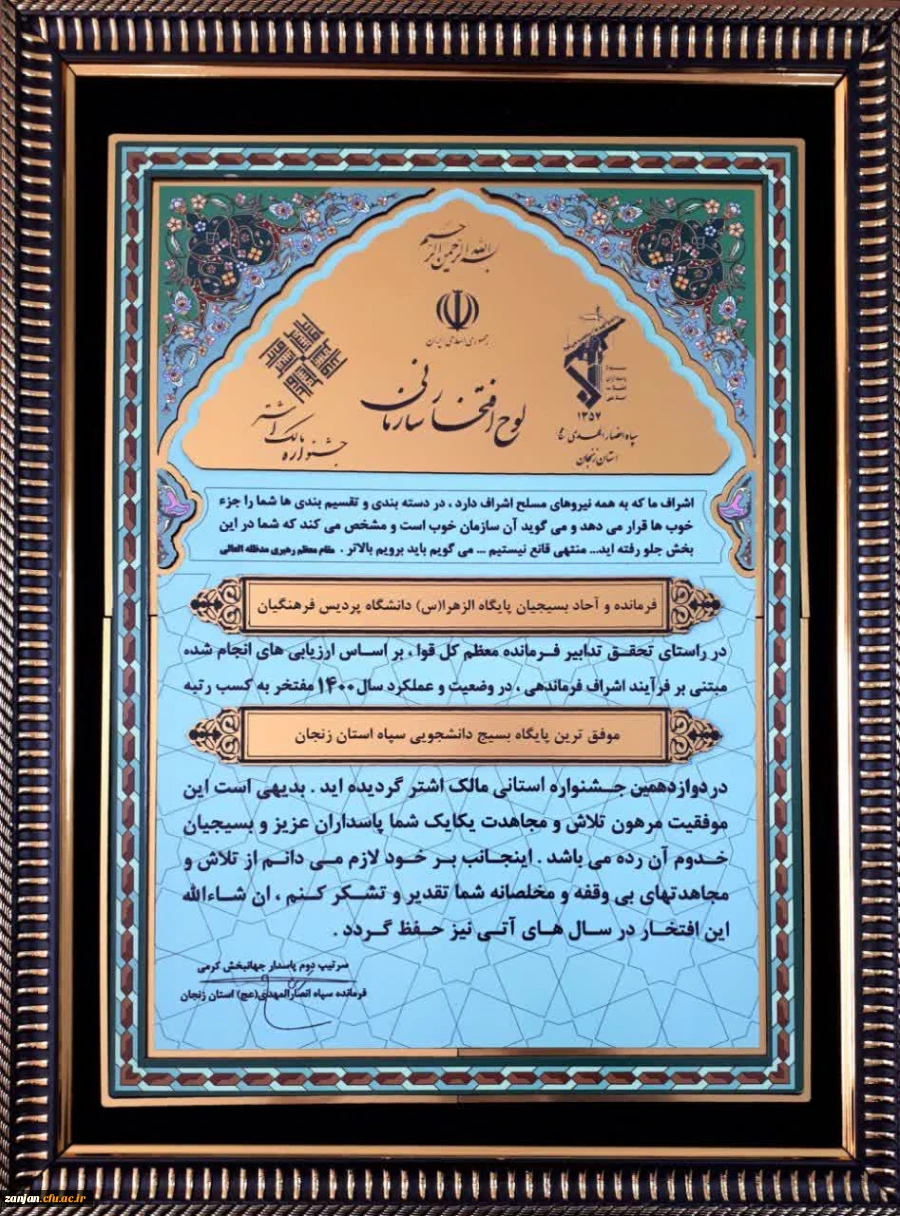 بسم الله الرحمن الرحیم
جمهوری اسلامی ایران
لوح افتخار سازمانی
جشنواره مالک اشتر
۱۳۵۷
سپاه انصار المهدی (عج)
استان زنجان
اشراف ما که به همه نیروهای مسلح اشراف دارد ، در دسته بندی و تقسیم بندی ها شما را جزء
خوب ها قرار می دهد و می گوید آن سازمان خوب است و مشخص می کند که شما در این
بخش جلو رفته اید... منتهی قانع نیستیم ... می گویم باید برویم بالاتر . مقام معظم رهبری مدظله العالی
فرمانده و آحاد بسیجیان پایگاه الزهرا(س) دانشگاه پردیس فرهنگیان
در راستای تحقق تدابیر فرمانده معظم کل قوا ، بر اساس ارزیابی های انجام شده
مبتنی بر فرآیند اشراف فرماندهی ، در وضعیت و عملکرد سال ۱۴۰۰ مفتخر به کسب رتبه
موفق ترین پایگاه بسیج دانشجویی سپاه استان زنجان
در دوازدهمین جشنواره استانی مالک اشتر گردیده اید . بدیهی است این
موفقیت مرهون تلاش و مجاهدت یکایک شما پاسداران عزیز و بسیجیان
خدوم آن رده می باشد . اینجانب بر خود لازم می دانم از تلاش و
مجاهدتهای بی وقفه و مخلصانه شما تقدیر و تشکر کنم ، ان شاءالله
این افتخار در سال های آتی نیز حفظ گردد .
سرتیپ دوم پاسدار جهانبخش کرمی
فرمانده سپاه انصارالمهدی(عج) استان زنجان
zanjan.cfu.ac.ir